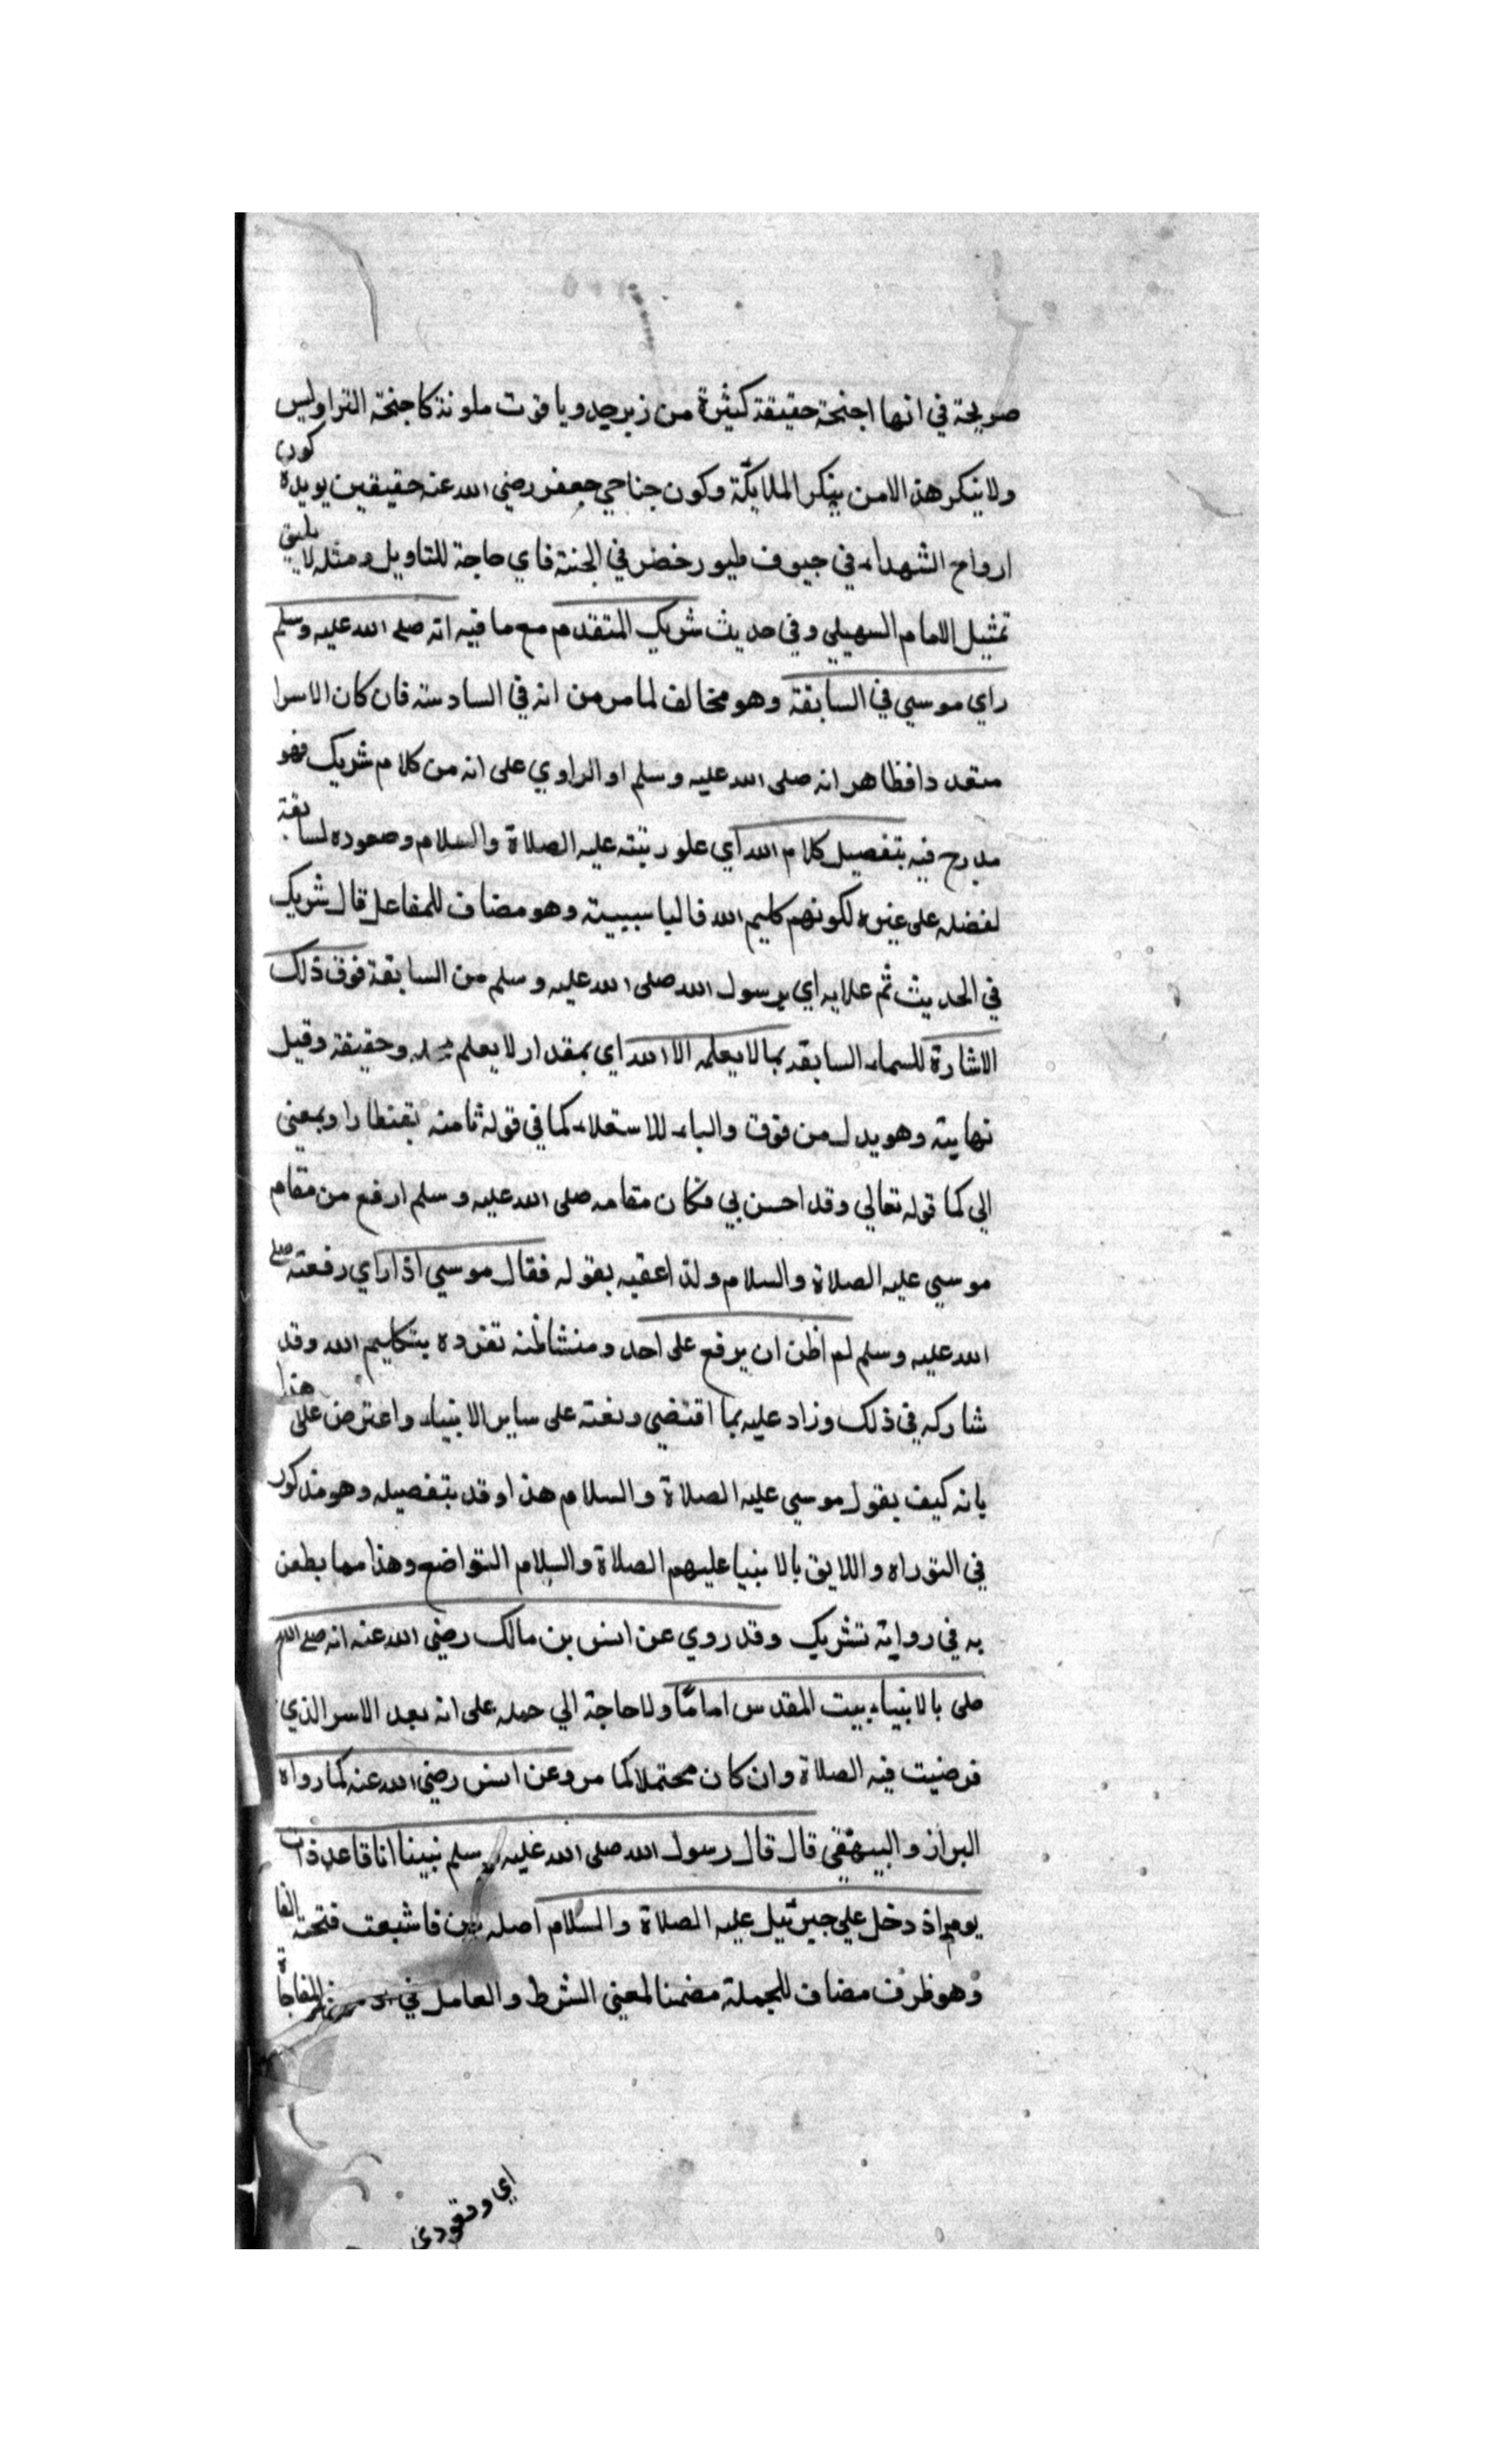 صريحة في انها اجنحة حقيقة كثيرة من زبرجد وياقوت ملونة كاجنحة التراوليس
ولا ينكر هذا الا من ينكر الملايكة وكون جناحي جعفر رضي الله عنه حقيقين يويده كون
ارواح الشهداء في جيوف طيور خضر في الجنة فاي حاجة للتاويل ومثله لا يليق
تمثيل الامام السهيلي وفي حديث شريك المتقدم مع ما فيه انه صلى الله عليه وسلم
راي موسي في السابقة وهو مخالف لما مر من انه في السادسة فان كان الاسرا
متعددا فظاهر انه صلى الله عليه وسلم او الراوي على انه من كلام شريك فهو
مدرج فيه بتفصيل كلام الله اي علو رتبته عليه الصلاة والسلام وصعوده لسابقة
لفضله على غيره لكونهم كليم الله فالبا سببية وهو مضاف للمفاعل قال شريك
في الحديث ثم علا به اي برسول الله صلى الله عليه وسلم من السابقة فوق ذلك
الاشارة للسماء السابقة بما لا يعلمه الا الله اي بمقدار لا يعلم وحقيقة وقيل
نهايته وهو بدل من فوق والباء للاستعلاء كما في قوله تامنه بقنطار او بمعني
الي كما قوله تعالي وقد احسن بي فكان مقامه صلى الله عليه وسلم ارفع من مقام
موسي عليه الصلاة والسلام ولذا عقبه بقوله فقال موسي اذا راي رفعته صلى
الله عليه وسلم لم اظن ان يرفع على احد ومنشا ظنه تفرده بتكليم الله وقد
شاركه في ذلك وزاد عليه بما اقتضي رفعته على ساير الانبياء واعترض على هذا
بانه كيف يقول موسي عليه الصلاة والسلام هذا وقد بتفصيله وهو مذكور
في التوراه واللايق بالانبيا عليهم الصلاة والسلام التواضع وهذا مما يطعن
به في رواية تشريك وقد روي عن انس بن مالك رضي الله عنه انه صلى الله
صلى بالانبياء بيت المقدس اماما ولا حاجة الي حمله على انه بعد الاسر الذي
فرضيت فيه الصلاة وان كان محتملا كما مر وعن انس رضي الله عنه كما رواه
البزاز والبيهقي قال قال رسول الله صلى الله عليه وسلم نبينا انا قاعد ذات
يوم اذ دخل علي جبرئيل عليه الصلاة والسلام اصله بين فاشبعت فتحته الفا
وهو ظرف مضاف للجملة مضمنا لمعني الشرط والعامل في المفاجاة
اي وقعودي